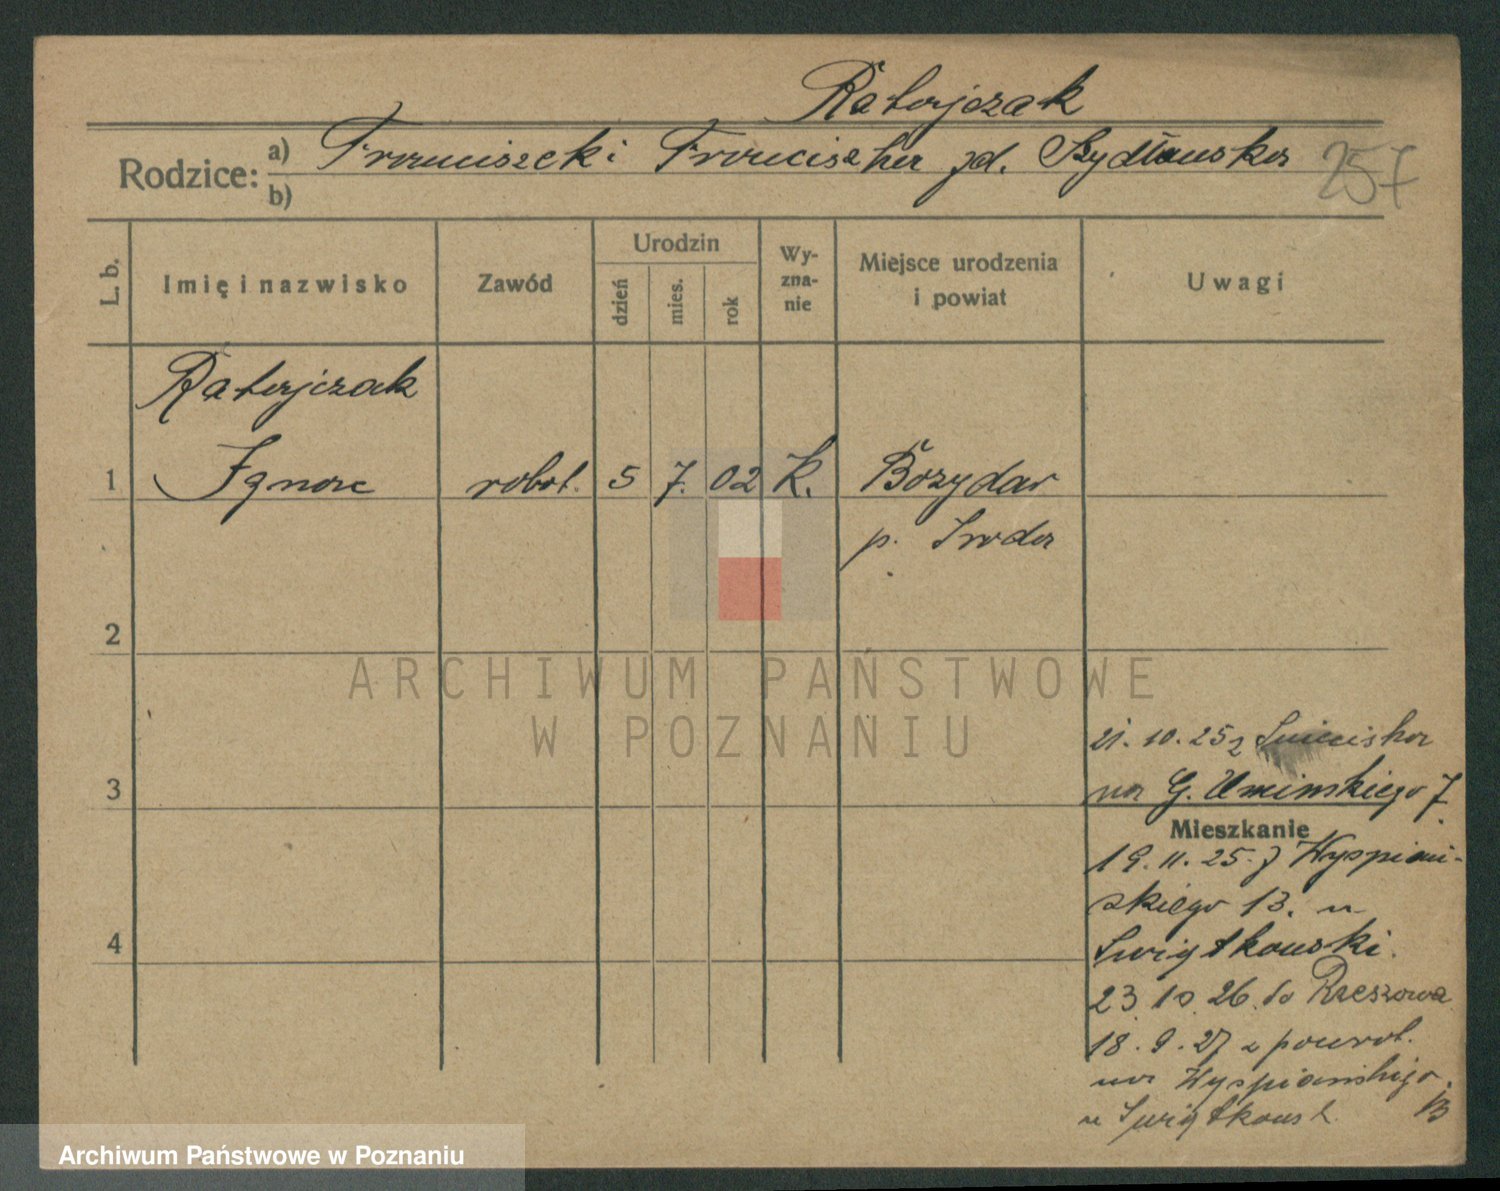 Ratajczak
Rodzice: a) Franciszek i Franciszka zd. Szydłowska 257
b)
L. b. Imię i nazwisko Zawód Urodzin dzień mies. rok Wy-zna-nie Miejsce urodzenia i powiat Uwagi
Ratajczak
1 Ignac robot. 5 7. 02 K. Bożydar
p. Środa
2
3
4
21. 10. 25 z
na G. Umińskiego 7.
Mieszkanie
19. 11. 25. Wyspiań-
skiego 13. u
Świątkowski.
23. 10. 26. do Rzeszowa
18. 9. 27 z powrot.
na Wyspiańskiego
u Świątkowsk. 13
ARCHIWUM PAŃSTWOWE
W POZNANIU
Archiwum Państwowe w Poznaniu